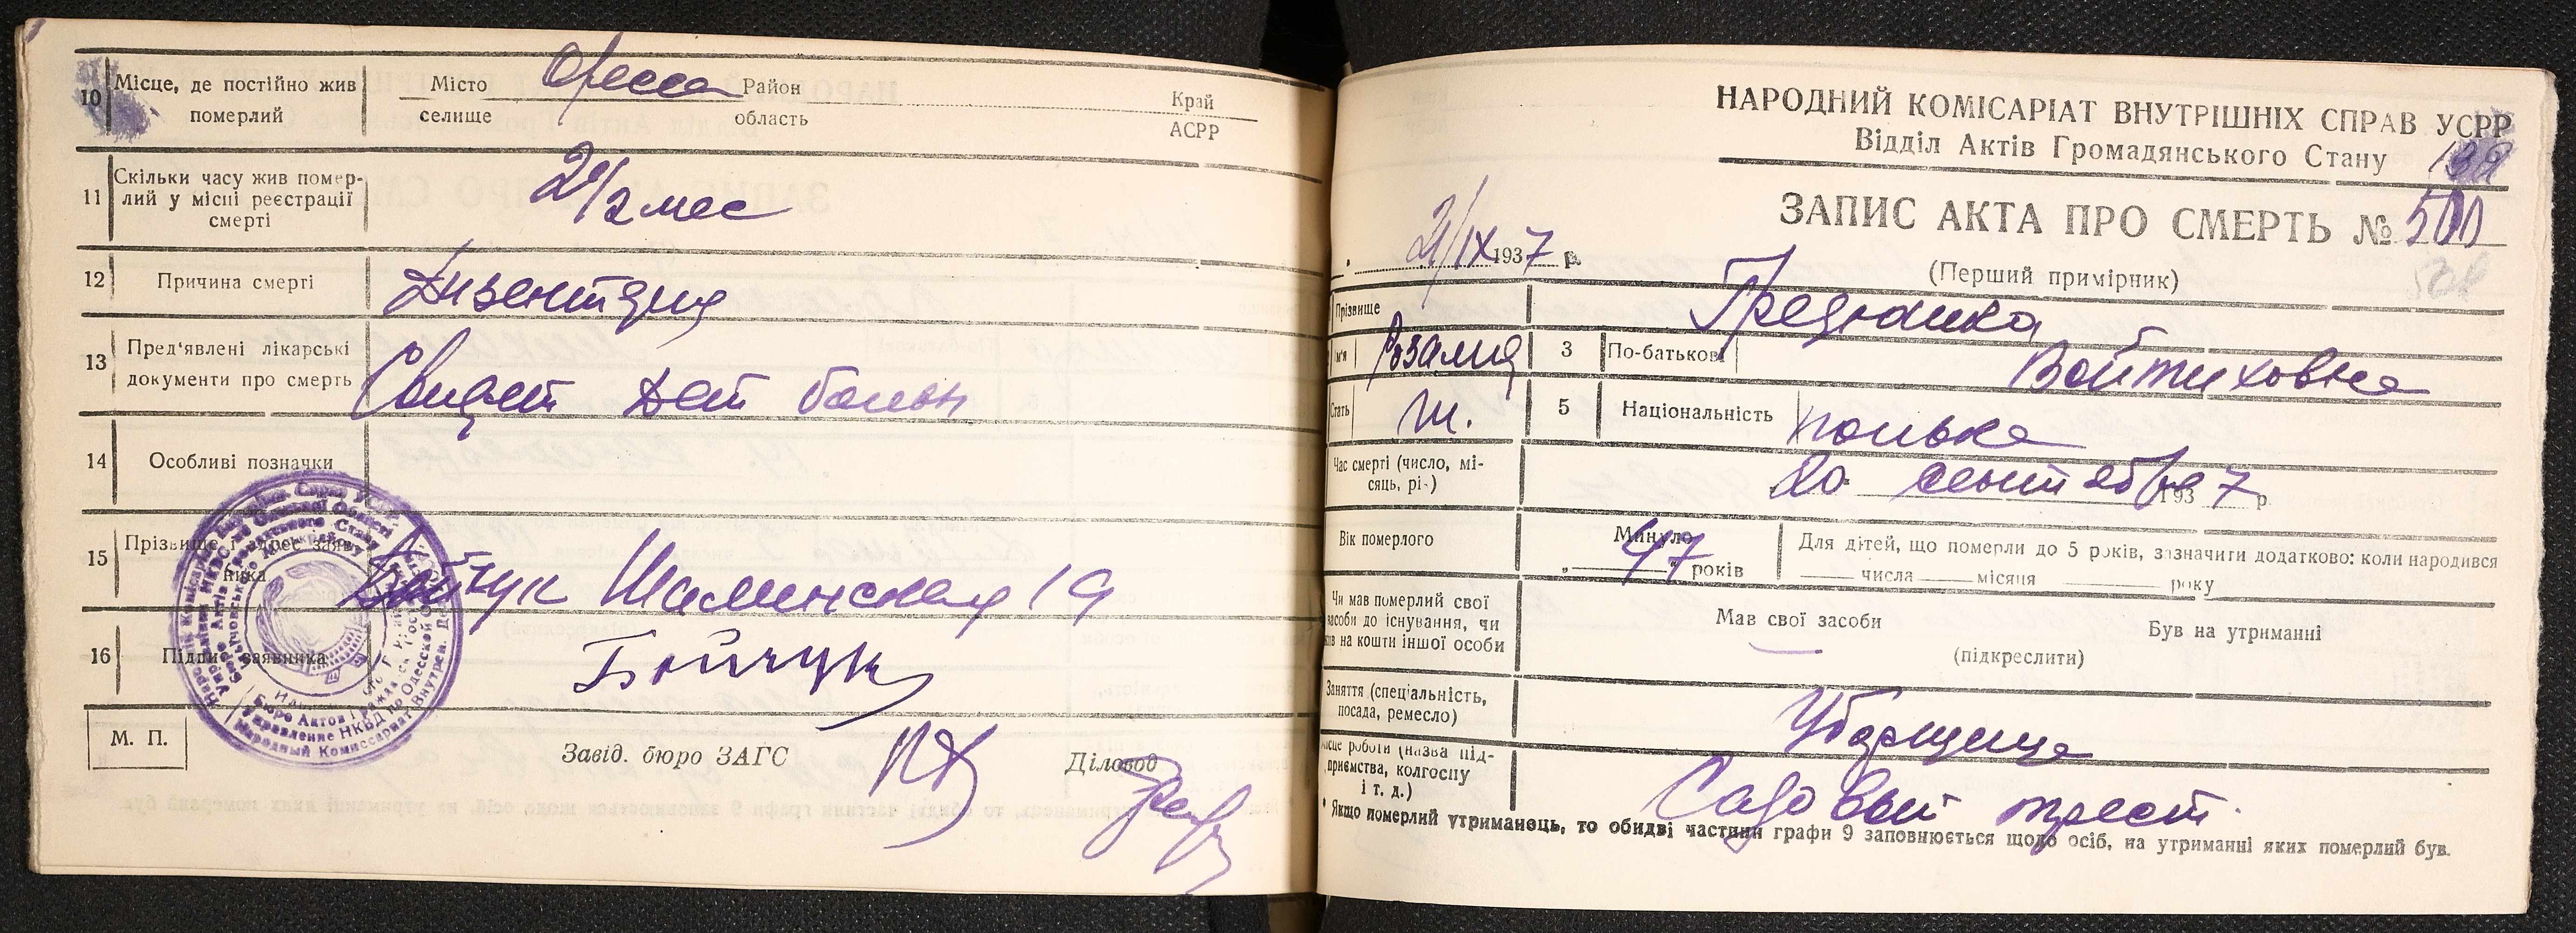 10 Місце, де постійно жив померлий
Місто селище Одесса Район область Край АСРР
11 Скільки часу жив померлий у місці реєстрації смерті
2 1/2 мес
12 Причина смерті
Дизентерия
13 Пред'явлені лікарські документи про смерть
Свидет бальн
14 Особливі позначки
15 Прізвище і адрес заявника
Бойчук 19
16 Підпис заявника
Бойчук
М. П.
Завід. бюро ЗАГС
Діловод
НАРОДНИЙ КОМІСАРІАТ ВНУТРІШНІХ СПРАВ УСРР
Відділ Актів Громадянського Стану
ЗАПИС АКТА ПРО СМЕРТЬ №
21/IX 1937 р.
(Перший примірник)
Прізвище
Ім'я Розалия 3 По-батькові Войтиховна
Стать ж. 5 Національність полька
Час смерті (число, місяць, рік) 20 сентября 1937 р.
Вік померлого
Минуло 47 років
Для дітей, що померли до 5 років, зазначити додатково: коли народився
числа місяця року
Чи мав померлий свої засоби до існування, чи на кошти іншої особи
Мав свої засоби Був на утриманні
(підкреслити)
Заняття (спеціальність, посада, ремесло)
Уборщица
Місце роботи (назва підприємства, колгоспу і т. д.)
Садовый трест.
* Якщо померлий утриманець, то обидві частини графи 9 заповнюється щодо осіб, на утриманні яких померлий був.